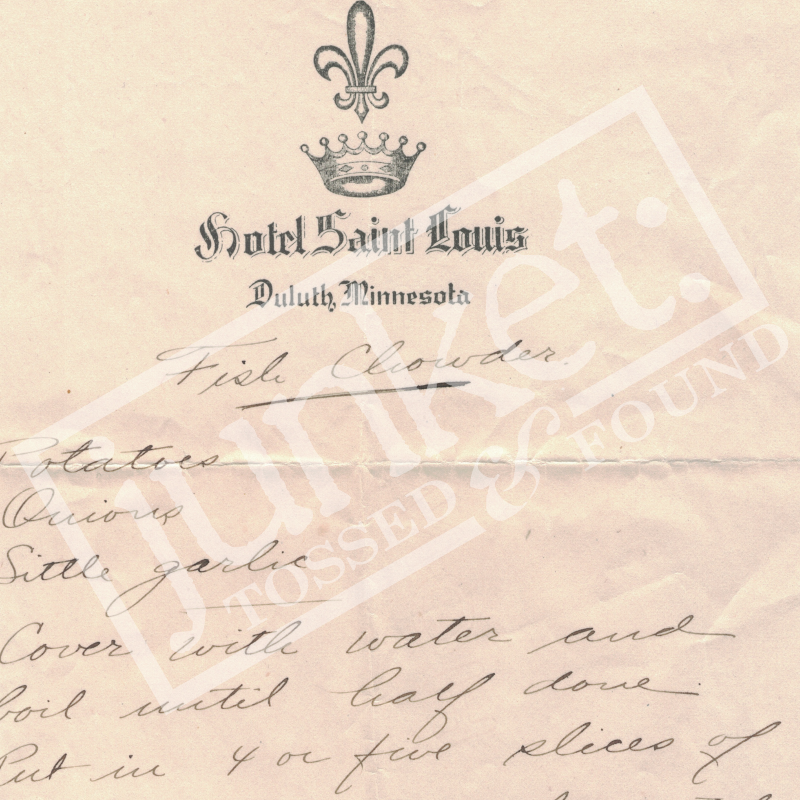 Hotel Saint Louis
Duluth, Minnesota
Fish Chowder.
Potatoes
Onions
Little garlic
Cover with water and
boil until half done.
Put in 4 or five slices of
junket:
TOSSED & FOUND